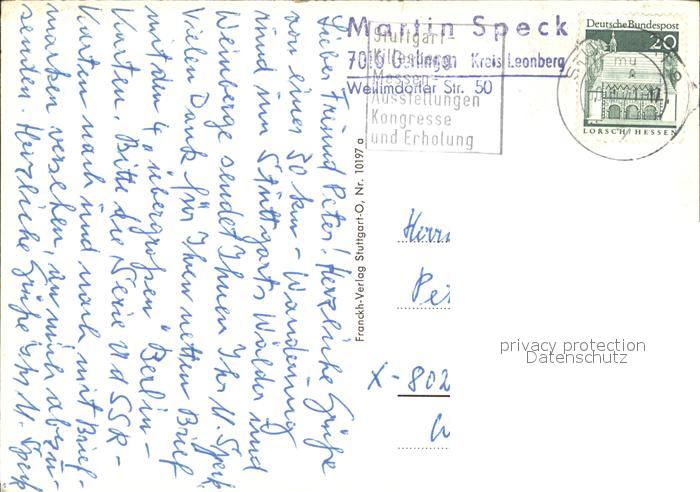 Lieber Freund Peter! Herzliche Grüße
von einer 30 km-Wanderung
rund um Stuttgarts Wälder und
Weinberge sendet Ihnen Ihr M. Speck
Vielen Dank für Ihren netten Brief
mit den 4 "übergroßen" Berlin-
Karten. Bitte die Serie UdSSR-
Karten nach und nach mit Brief-
marken versehen, an mich abzu-
senden. Herzliche Grüße Ihr M. Speck
Franckh-Verlag Stuttgart-O, Nr. 10197 a
Martin Speck
7016 Gerlingen Kreis Leonberg
Weilimdorfer Str. 50
Stuttgart
Killesberg
Messen-
Ausstellungen
Kongresse
und Erholung
Deutsche Bundespost
20
LORSCH/HESSEN
Herrn
Pe
X-802
privacy protection
Datenschutz